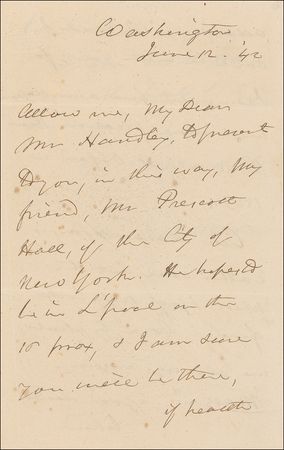 Washington
June 12. '42
Allow me, My Dear
Mr Handley, to present
to you, in this way, My
friend, Mr Prescott
Hall, of the City of
New York. He hopes to
be in L'pool on the
10 prox, & I am sure
you will be there,
if health